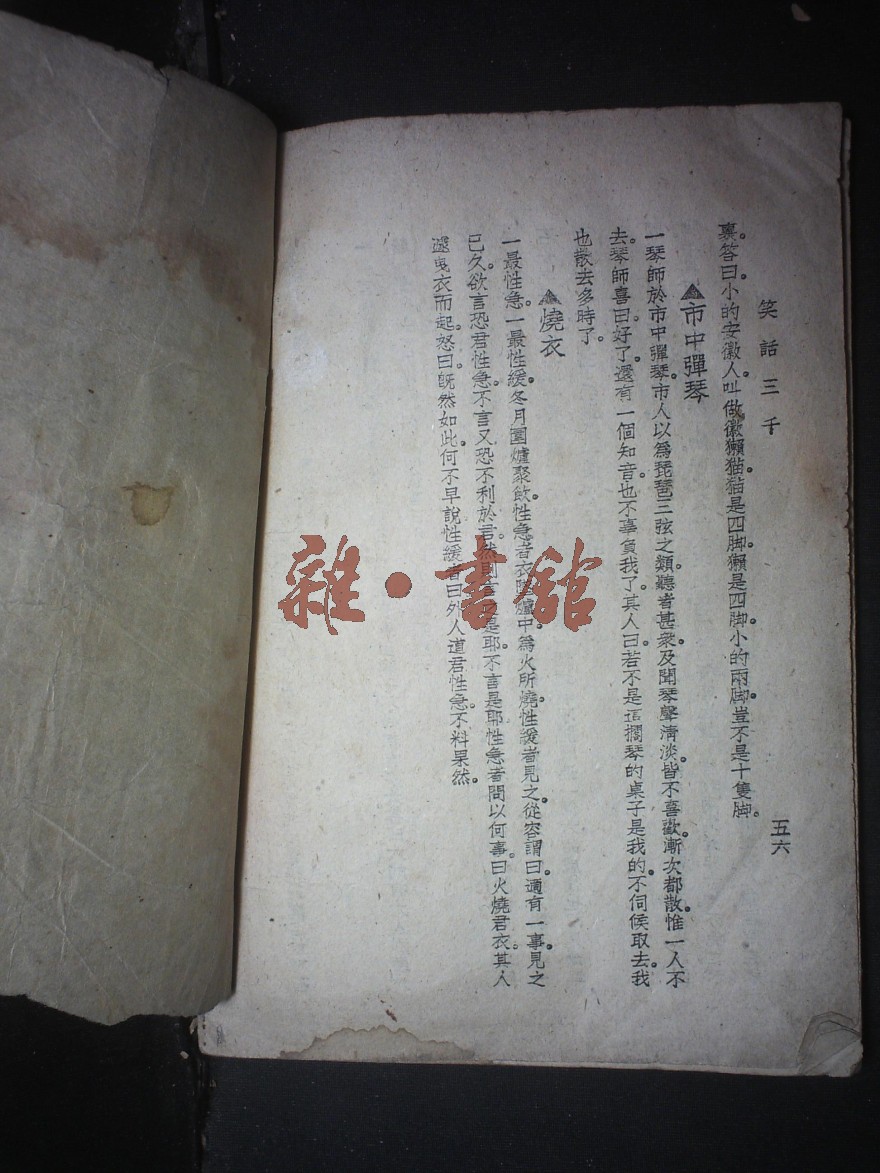 笑話三千
五六
裏。答曰。小的安徽人。叫做徽獺猫。猫是四脚。獺是四脚。小的兩脚。豈不是十隻脚。
▲市中彈琴
一琴師於市中彈琴。市人以爲琵琶三弦之類。聽者甚衆。及聞琴聲淸淡。皆不喜歡。漸次都散。惟一人不
去。琴師喜曰。好了。還有一個知音。也不辜負我了。其人曰。若不是這擱琴的桌子是我的。不伺候取去。我
也散去多時了。
▲燒衣
一最性急。一最性緩。冬月圍爐聚飮。性急者衣 爐中。爲火所燒。性緩者見之。從容謂曰。適有一事。見之
已久。欲言恐君性急。不言又恐不利於君。然則言 是耶。不言是耶。性急者問以何事。曰火燒君衣。其人
遽曳衣而起。怒曰。旣然如此。何不早說。性緩者曰。外人道君性急。不料果然。
雜·書館